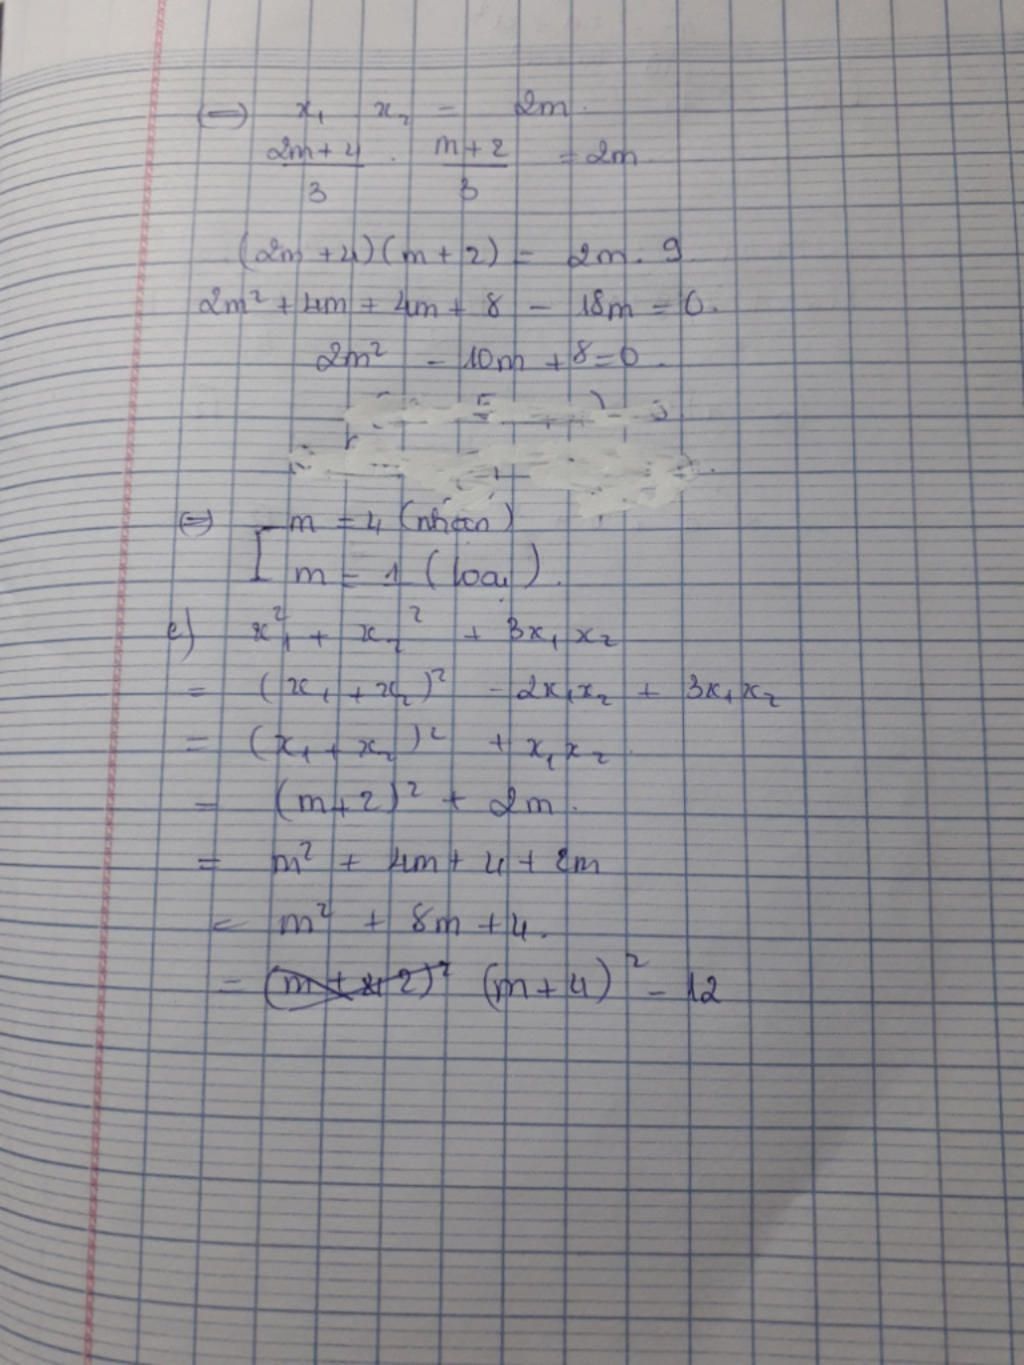 (=) x₁ x₂ = 2m.
(2m+4)/3 . (m+2)/3 = 2m
(2m+4)(m+2) = 2m.9
2m² + 4m + 4m + 8 - 18m = 0.
2m² - 10m + 8 = 0.
(=) [ m = 4 (nhận)
m = 1 (loại).
e) x₁² + x₂² + 3x₁x₂
= (x₁ + x₂)² - 2x₁x₂ + 3x₁x₂
= (x₁ + x₂)² + x₁x₂
= (m+2)² + 2m.
= m² + 4m + 4 + 2m
= m² + 8m + 4.
= (m+4)² - 12